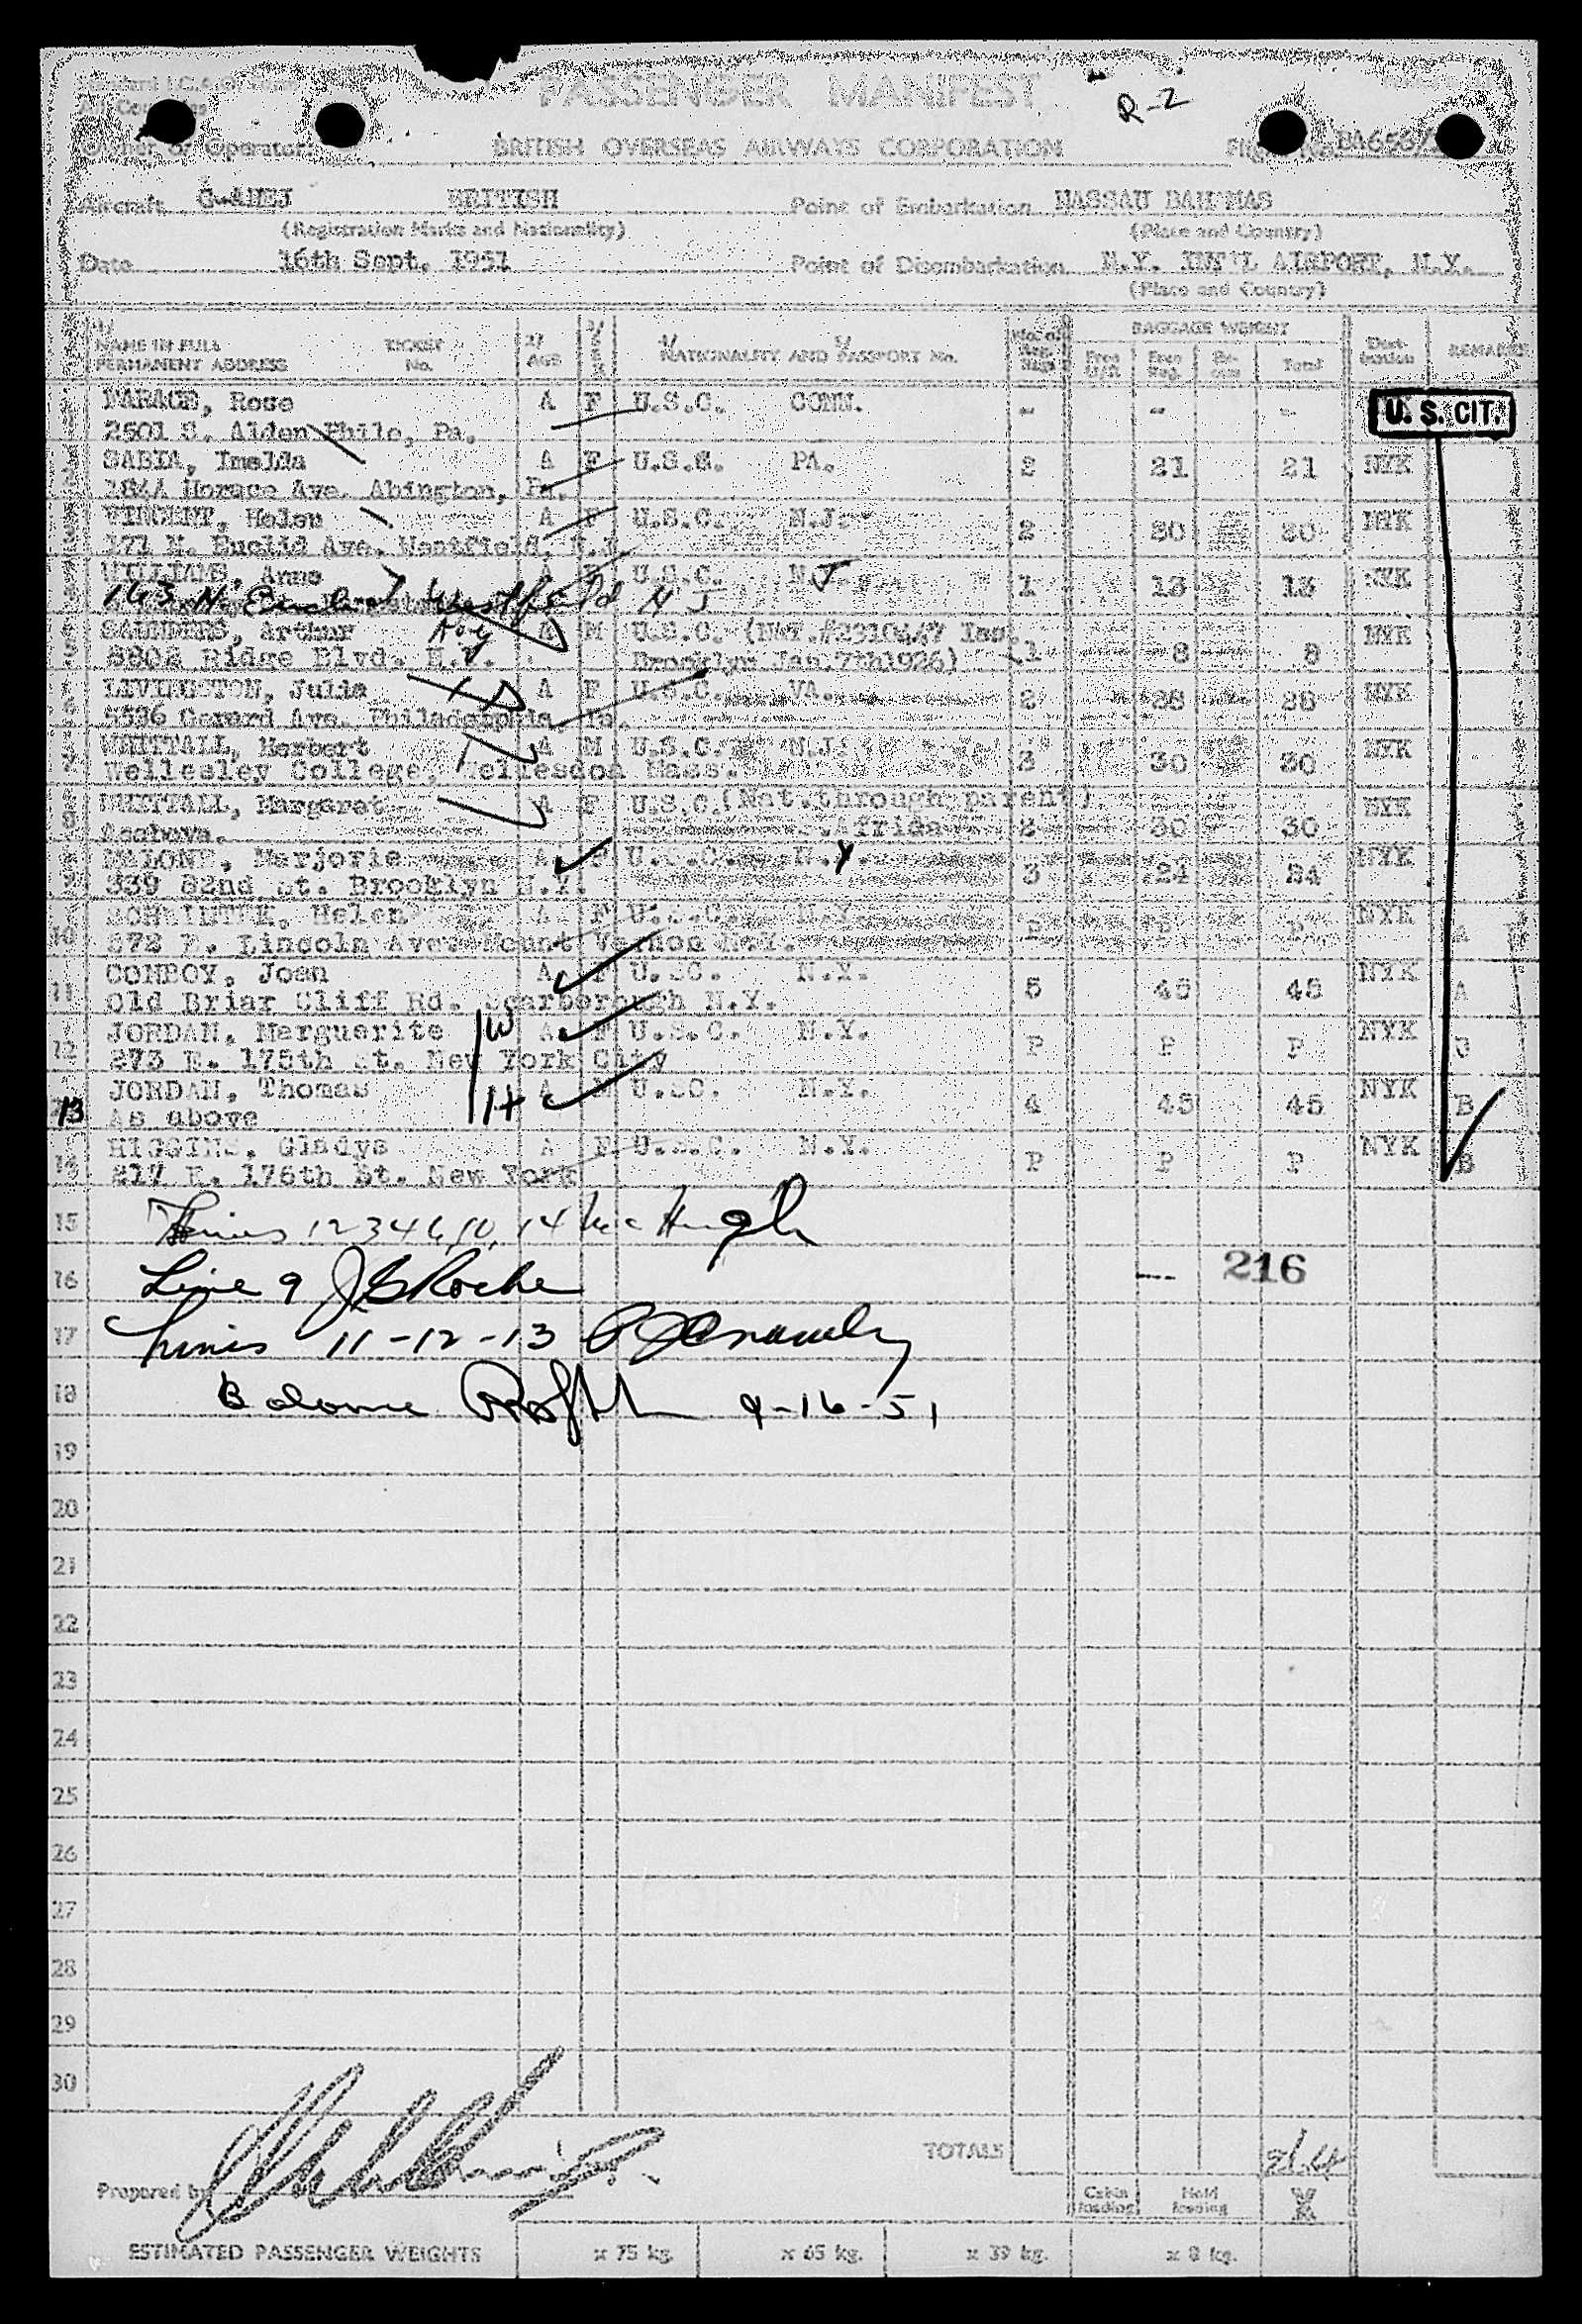 PASSENGER MANIFEST
R-2
Operator BRITISH OVERSEAS AIRWAYS CORPORATION
Aircraft G-AHEJ BRITISH Point of Embarkation NASSAU BAHAMAS
(Registration Marks and Nationality) (Place and Country)
Date 16th Sept. 1951 Point of Disembarkation N.Y. INT'L AIRPORT, N.Y.
(Place and Country)
BAGGAGE WEIGHT
NAME IN FULL TICKET 2/ 4/ 5/
PERMANENT ADDRESS No. AGE SEX NATIONALITY AND PASSPORT No. Total REMARKS
Rose A F U.S.C. CONN. - - - U. S. CIT.
2501 S. Alden Phila, Pa.
SABIA, Imelda A F U.S.C. PA. 2 21 21 NYK
Horace Ave. Abington, Pa.
VINCENT, Helen A F U.S.C. N.J. 2 30 30 NYK
171 N. Euclid Ave. Westfield, N.J.
WILLIAMS, Anne A F U.S.C. N.J. 1 13 13 NYK
163 N. Euclid Westfield N J
SAUNDERS, Arthur Roy A M U.S.C. (NAT.#2910447 Iss. 1 8 8 NYK
8802 Ridge Blvd. N.Y. Brooklyn Jan.7th1926)
LIVINGSTON, Julia A F U.S.C. VA. 2 28 28 NYK
Gerard Ave. Philadelphia, Pa.
WHITTALL, Herbert A M U.S.C. N.J. 3 30 30 NYK
Wellesley College, Mass.
WHITTALL, Margaret A F U.S.C.(Nat.through parent) 2 30 30 NYK
Asabove. Africa
MALONE, Marjorie A F U.S.C. N.Y. 3 24 24 NYK
339 82nd St. Brooklyn N.Y.
Helen A F U.S.C. N.Y. P P P NYK A
10 672 E. Lincoln Ave. Mount Vernon N.Y.
CONBOY, Joan A F U.SC. N.Y. 5 48 48 NYK A
11 Old Briar Cliff Rd. Scarborough N.Y.
JORDAN, Marguerite W A F U.S.C. N.Y. P P P NYK
12 273 E. 175th St. New York City
JORDAN, Thomas H A M U.SC. N.Y. 4 45 45 NYK B
13 As above
HIGGINS, Gladys A F U.S.C. N.Y. P P P NYK B
14 217 E. 176th St. New York
15 Lines 1 2 3 4 6, 10, 14 McHugh
16 Line 9 J.G. Roche --- 216
17 Lines 11-12-13
18 Balance 9-16-51
19
20
21
22
23
24
25
26
27
28
29
30
TOTALS 216
Prepared by
Cabin loading Hold loading
ESTIMATED PASSENGER WEIGHTS x 75 kg. x 65 kg. x 39 kg. x 8 kg.